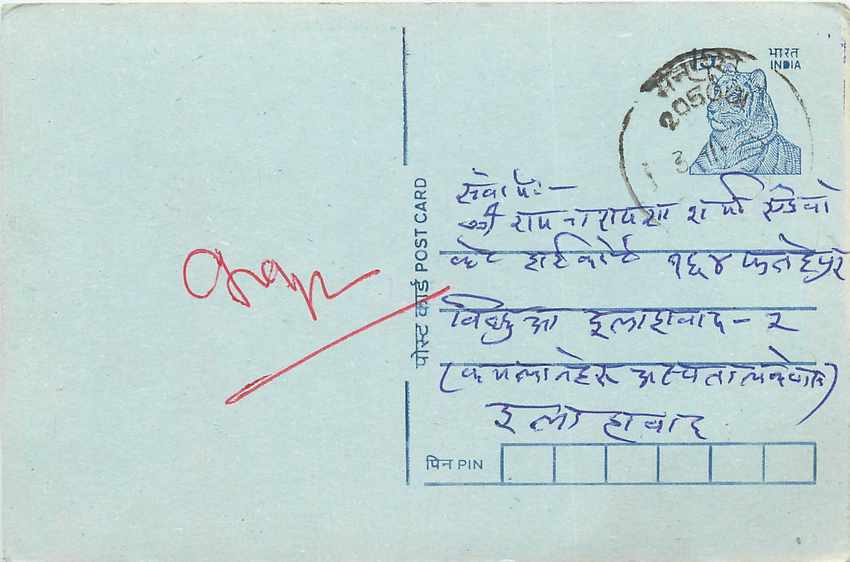 भारत
INDIA
मैनपुरी
205001
3
सेवा में:-
श्री रामनारायण शर्मा एडवो
केट हाईकोर्ट १६४ फतेहपुर
विछुआ इलाहावाद - २
(कमलानेहरु अस्पताल के पास)
इलाहावाद
पोस्ट कार्ड POST CARD
पिन PIN